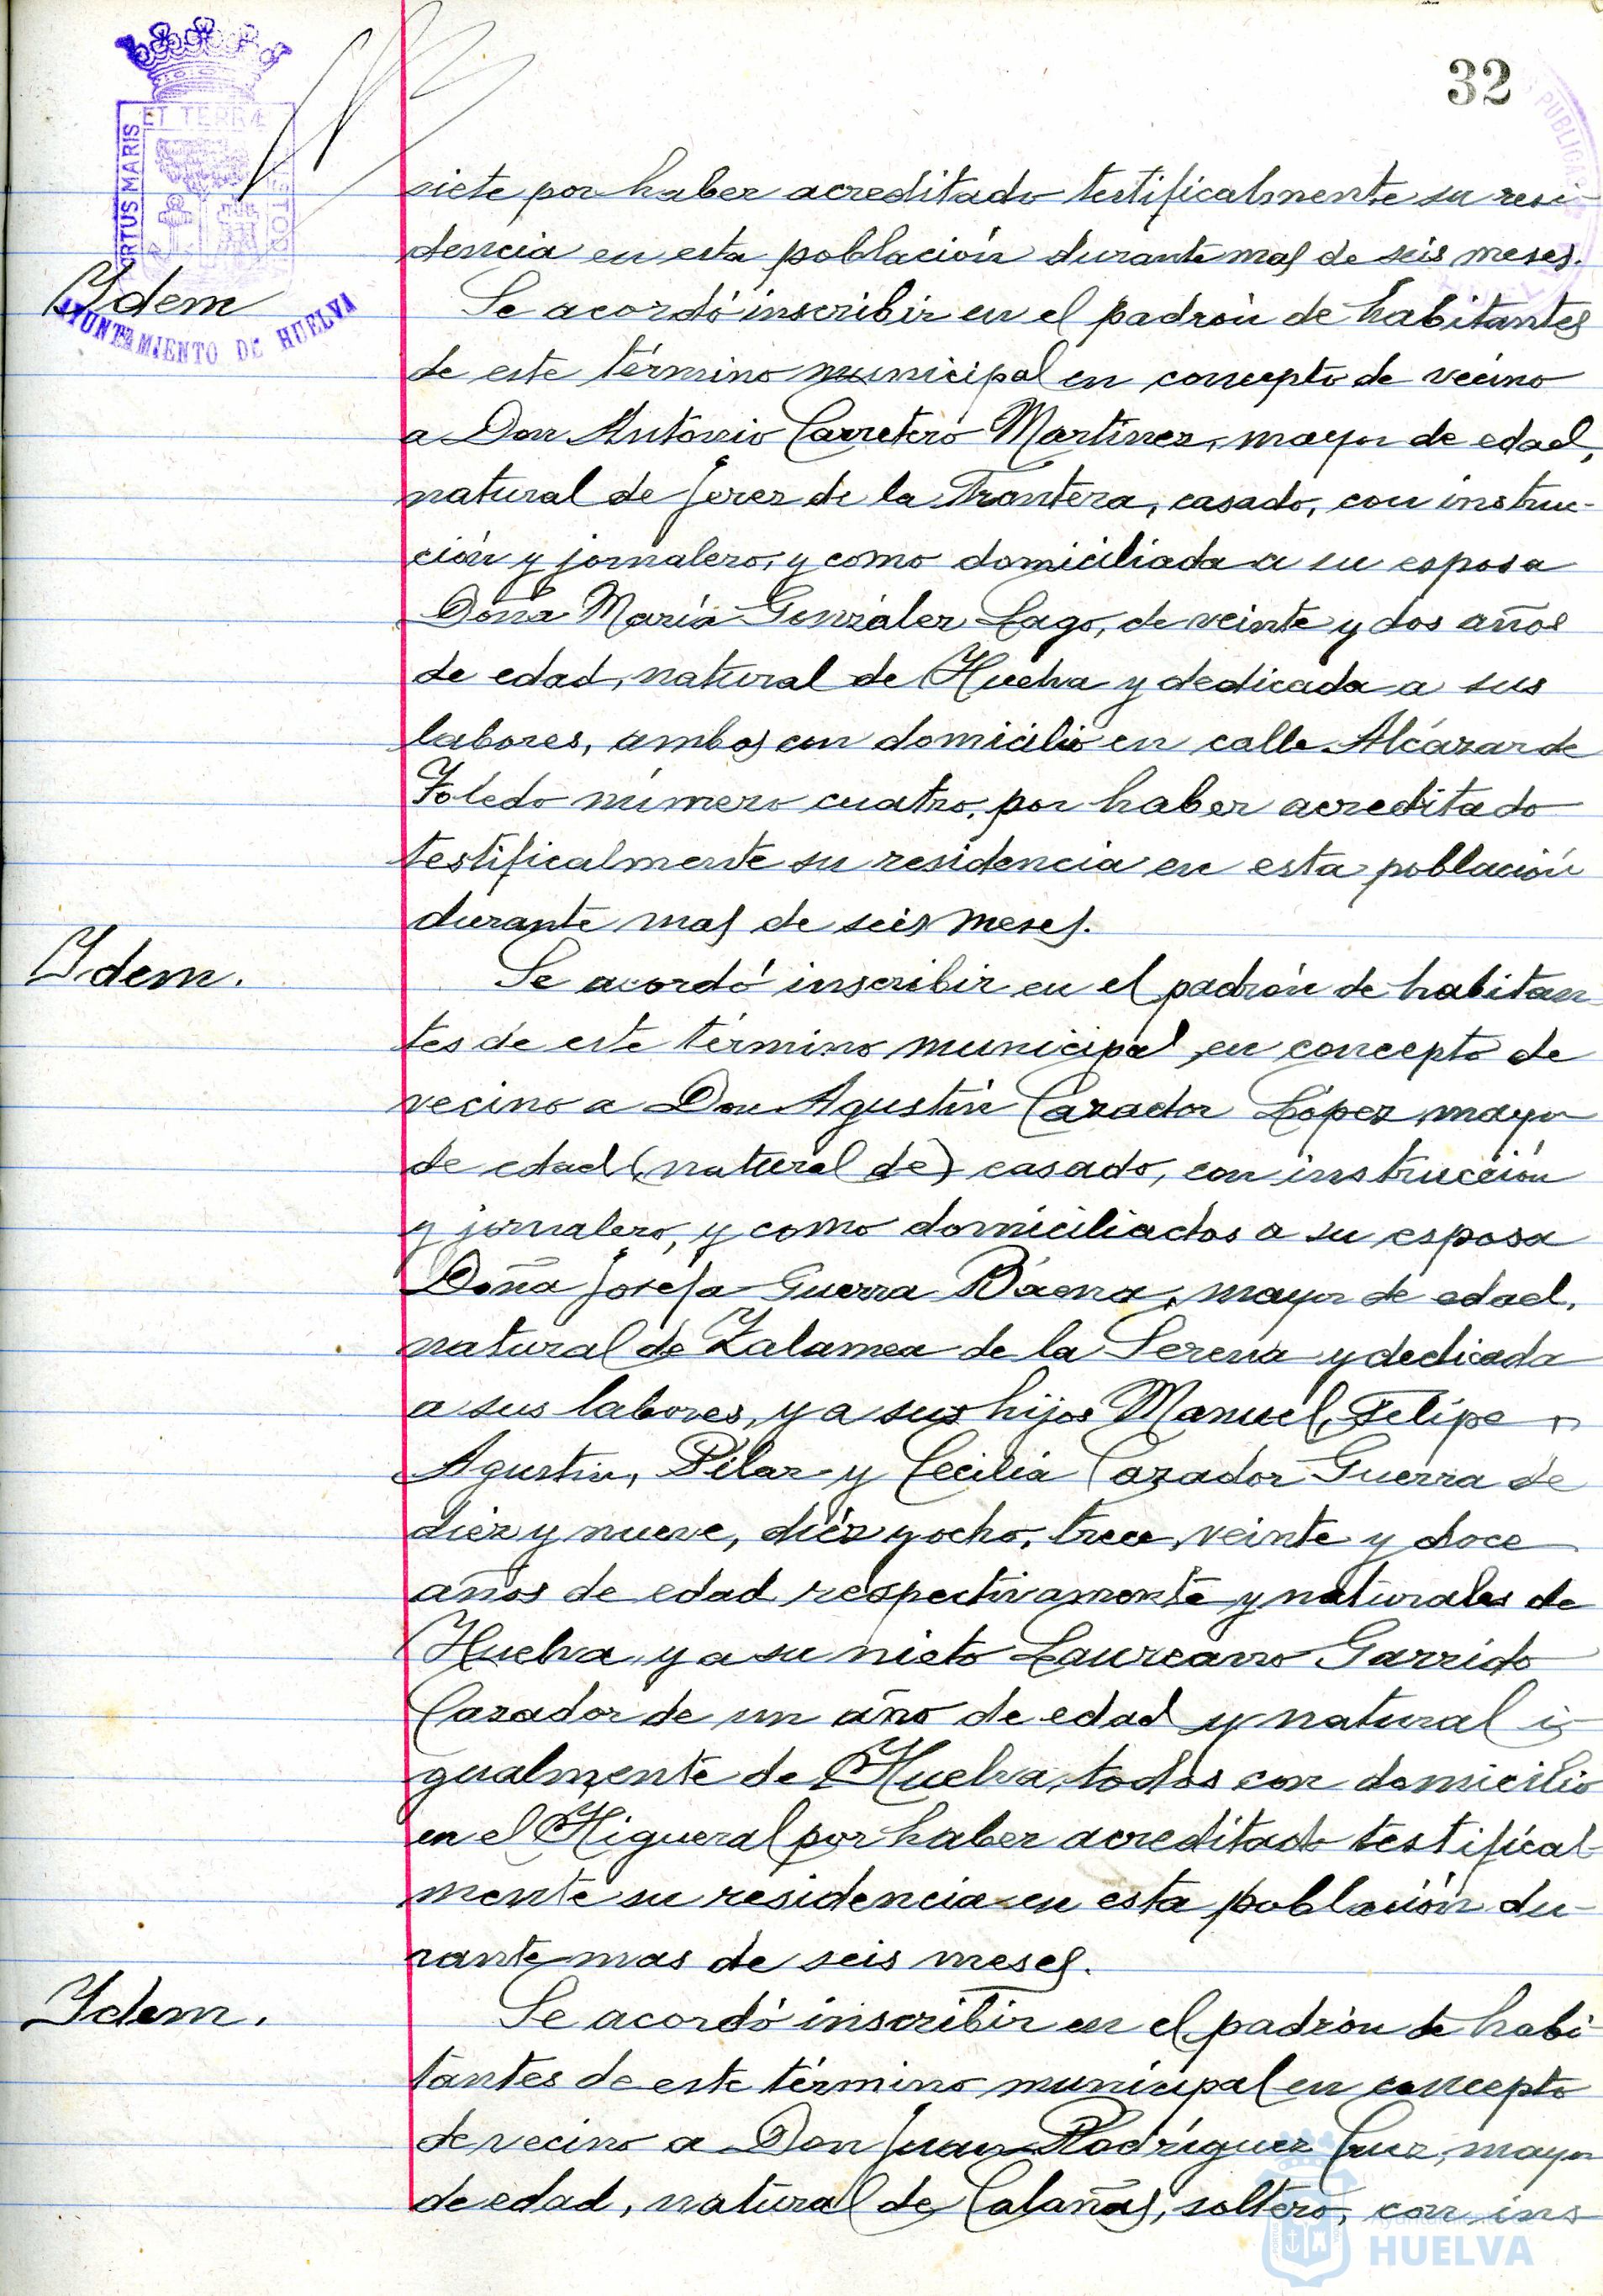 32
ET TERRÆ
PORTUS MARIS
CUSTO
AYUNTAMIENTO DE HUELVA
PUBLICA
siete por haber acreditado testificalmente su resi-
dencia en esta población durante mas de seis meses.
Idem
Se acordó inscribir en el padrón de habitantes
de este término municipal en concepto de vecino
a Don Antonio Carretero Martínez, mayor de edad,
natural de Jerez de la Frontera, casado, con instruc-
ción y jornalero, y como domiciliada a su esposa
Doña María González Lago, de veinte y dos años
de edad, natural de Huelva y dedicada a sus
labores, ambos con domicilio en calle Alcázar de
Toledo número cuatro, por haber acreditado
testificalmente su residencia en esta población
durante mas de seis meses.
Idem.
Se acordó inscribir en el padrón de habitan
tes de este término municipal en concepto de
vecino a Don Agustín Cazador López mayor
de edad (natural de) casado, con instrucción
y jornalero, y como domiciliados a su esposa
Doña Josefa Guerra Báena, mayor de edad,
natural de Zalamea de la Serena y dedicada
a sus labores, y a sus hijos Manuel, Felipe,
Agustín, Pilar y Cecilia Cazador Guerra de
diez y nueve, diez y ocho, trece, veinte y doce
años de edad respectivamente y naturales de
Huelva, y a su nieto Laureano Garrido
Cazador de un año de edad y natural i-
gualmente de Huelva, todos con domicilio
en el Higueral por haber acreditado testifical-
mente su residencia en esta población du-
rante mas de seis meses.
Idem.
Se acordó inscribir en el padrón de habi-
tantes de este término municipal en concepto
de vecino a Don Juan Rodríguez Cruz, mayor
de edad, natural de Calañas, soltero, con ins
Ayuntamiento de
HUELVA